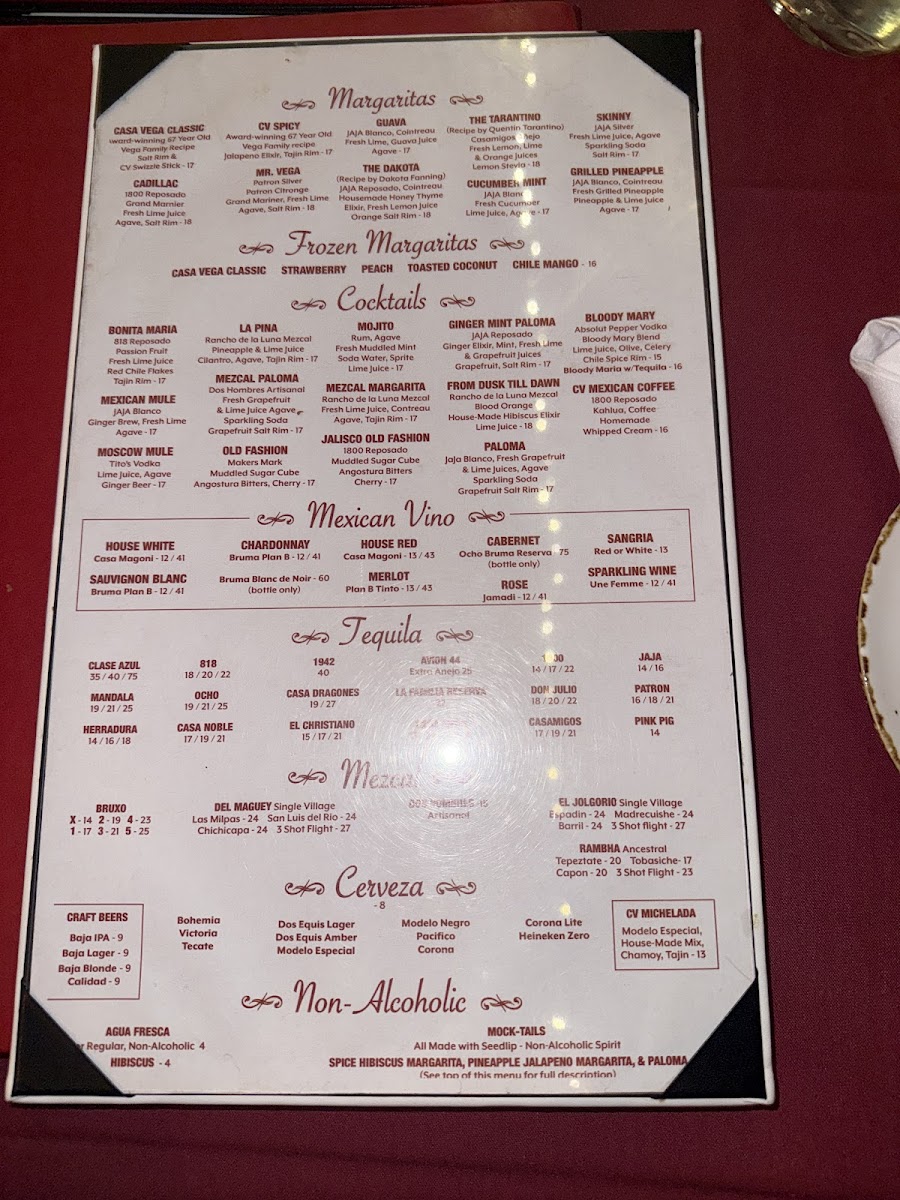 Margaritas
CASA VEGA CLASSIC
ward-winning 67 Year Old
Vega Family Recipe
Salt Rim &
CV Swizzle Stick - 17
CV SPICY
Award-winning 67 Year Old
Vega Family recipe
Jalapeno Elixir, Tajin Rim - 17
GUAVA
JAJA Blanco, Cointreau
Fresh Lime, Guava Juice
Agave - 17
THE TARANTINO
(Recipe by Quentin Tarantino)
Casamigos Añejo
Fresh Lemon, Lime
& Orange Juices
Lemon Stevia - 18
SKINNY
JAJA Silver
Fresh Lime Juice, Agave
Sparkling Soda
Salt Rim - 17
CADILLAC
1800 Reposado
Grand Marnier
Fresh Lime Juice
Agave, Salt Rim - 18
MR. VEGA
Patron Silver
Patron Citronge
Grand Mariner, Fresh Lime
Agave, Salt Rim - 18
THE DAKOTA
(Recipe by Dakota Fanning)
JAJA Reposado, Cointreau
Housemade Honey Thyme
Elixir, Fresh Lemon Juice
Orange Salt Rim - 18
CUCUMBER MINT
JAJA Blanco
Fresh Cucumber
Lime Juice, Agave - 17
GRILLED PINEAPPLE
JAJA Blanco, Cointreau
Fresh Grilled Pineapple
Pineapple & Lime Juice
Agave - 17
Frozen Margaritas
CASA VEGA CLASSIC STRAWBERRY PEACH TOASTED COCONUT CHILE MANGO - 16
Cocktails
BONITA MARIA
818 Reposado
Passion Fruit
Fresh Lime Juice
Red Chile Flakes
Tajin Rim - 17
LA PINA
Rancho de la Luna Mezcal
Pineapple & Lime Juice
Cilantro, Agave, Tajin Rim - 17
MOJITO
Rum, Agave
Fresh Muddled Mint
Soda Water, Sprite
Lime Juice - 17
GINGER MINT PALOMA
JAJA Reposado
Ginger Elixir, Mint, Fresh Lime
& Grapefruit Juices
Grapefruit, Salt Rim - 17
BLOODY MARY
Absolut Pepper Vodka
Bloody Mary Blend
Lime Juice, Olive, Celery
Chile Spice Rim - 15
Bloody Maria w/Tequila - 16
MEXICAN MULE
JAJA Blanco
Ginger Brew, Fresh Lime
Agave - 17
MEZCAL PALOMA
Dos Hombres Artisanal
Fresh Grapefruit
& Lime Juice Agave
Sparkling Soda
Grapefruit Salt Rim - 17
MEZCAL MARGARITA
Rancho de la Luna Mezcal
Fresh Lime Juice, Contreau
Agave, Tajin Rim - 17
FROM DUSK TILL DAWN
Rancho de la Luna Mezcal
Blood Orange
House-Made Hibiscus Elixir
Lime Juice - 18
CV MEXICAN COFFEE
1800 Reposado
Kahlua, Coffee
Homemade
Whipped Cream - 16
MOSCOW MULE
Tito's Vodka
Lime Juice, Agave
Ginger Beer - 17
OLD FASHION
Makers Mark
Muddled Sugar Cube
Angostura Bitters, Cherry - 17
JALISCO OLD FASHION
1800 Reposado
Muddled Sugar Cube
Angostura Bitters
Cherry - 17
PALOMA
JaJa Blanco, Fresh Grapefruit
& Lime Juices, Agave
Sparkling Soda
Grapefruit Salt Rim - 17
Mexican Vino
HOUSE WHITE
Casa Magoni - 12 / 41
CHARDONNAY
Bruma Plan B - 12 / 41
HOUSE RED
Casa Magoni - 13 / 43
CABERNET
Ocho Bruma Reserva - 75
(bottle only)
SANGRIA
Red or White - 13
SAUVIGNON BLANC
Bruma Plan B - 12 / 41
Bruma Blanc de Noir - 60
(bottle only)
MERLOT
Plan B Tinto - 13 / 43
ROSE
Jamadi - 12 / 41
SPARKLING WINE
Une Femme - 12 / 41
Tequila
CLASE AZUL
35 / 40 / 75
818
18 / 20 / 22
1942
40
AVION 44
Extra Anejo 25
14 / 17 / 22
JAJA
14 / 16
MANDALA
19 / 21 / 25
OCHO
19 / 21 / 25
CASA DRAGONES
19 / 27
LA FAMILIA RESERVA
DON JULIO
18 / 20 / 22
PATRON
16 / 18 / 21
HERRADURA
14 / 16 / 18
CASA NOBLE
17 / 19 / 21
EL CHRISTIANO
15 / 17 / 21
CASAMIGOS
17 / 19 / 21
PINK PIG
14
Mezcal
BRUXO
X - 14 2 - 19 4 - 23
1 - 17 3 - 21 5 - 25
DEL MAGUEY Single Village
Las Milpas - 24 San Luis del Rio - 24
Chichicapa - 24 3 Shot Flight - 27
DOS HOMBRES - 15
Artisanal
EL JOLGORIO Single Village
Espadin - 24 Madrecuishe - 24
Barril - 24 3 Shot flight - 27
RAMBHA Ancestral
Tepeztate - 20 Tobasiche- 17
Capon - 20 3 Shot Flight - 23
Cerveza
- 8
CRAFT BEERS
Baja IPA - 9
Baja Lager - 9
Baja Blonde - 9
Calidad - 9
Bohemia
Victoria
Tecate
Dos Equis Lager
Dos Equis Amber
Modelo Especial
Modelo Negro
Pacifico
Corona
Corona Lite
Heineken Zero
CV MICHELADA
Modelo Especial,
House-Made Mix,
Chamoy, Tajin - 13
Non-Alcoholic
AGUA FRESCA
Regular, Non-Alcoholic 4
HIBISCUS - 4
MOCK-TAILS
All Made with Seedlip - Non-Alcoholic Spirit
SPICE HIBISCUS MARGARITA, PINEAPPLE JALAPENO MARGARITA, & PALOMA
(See top of this menu for full description)